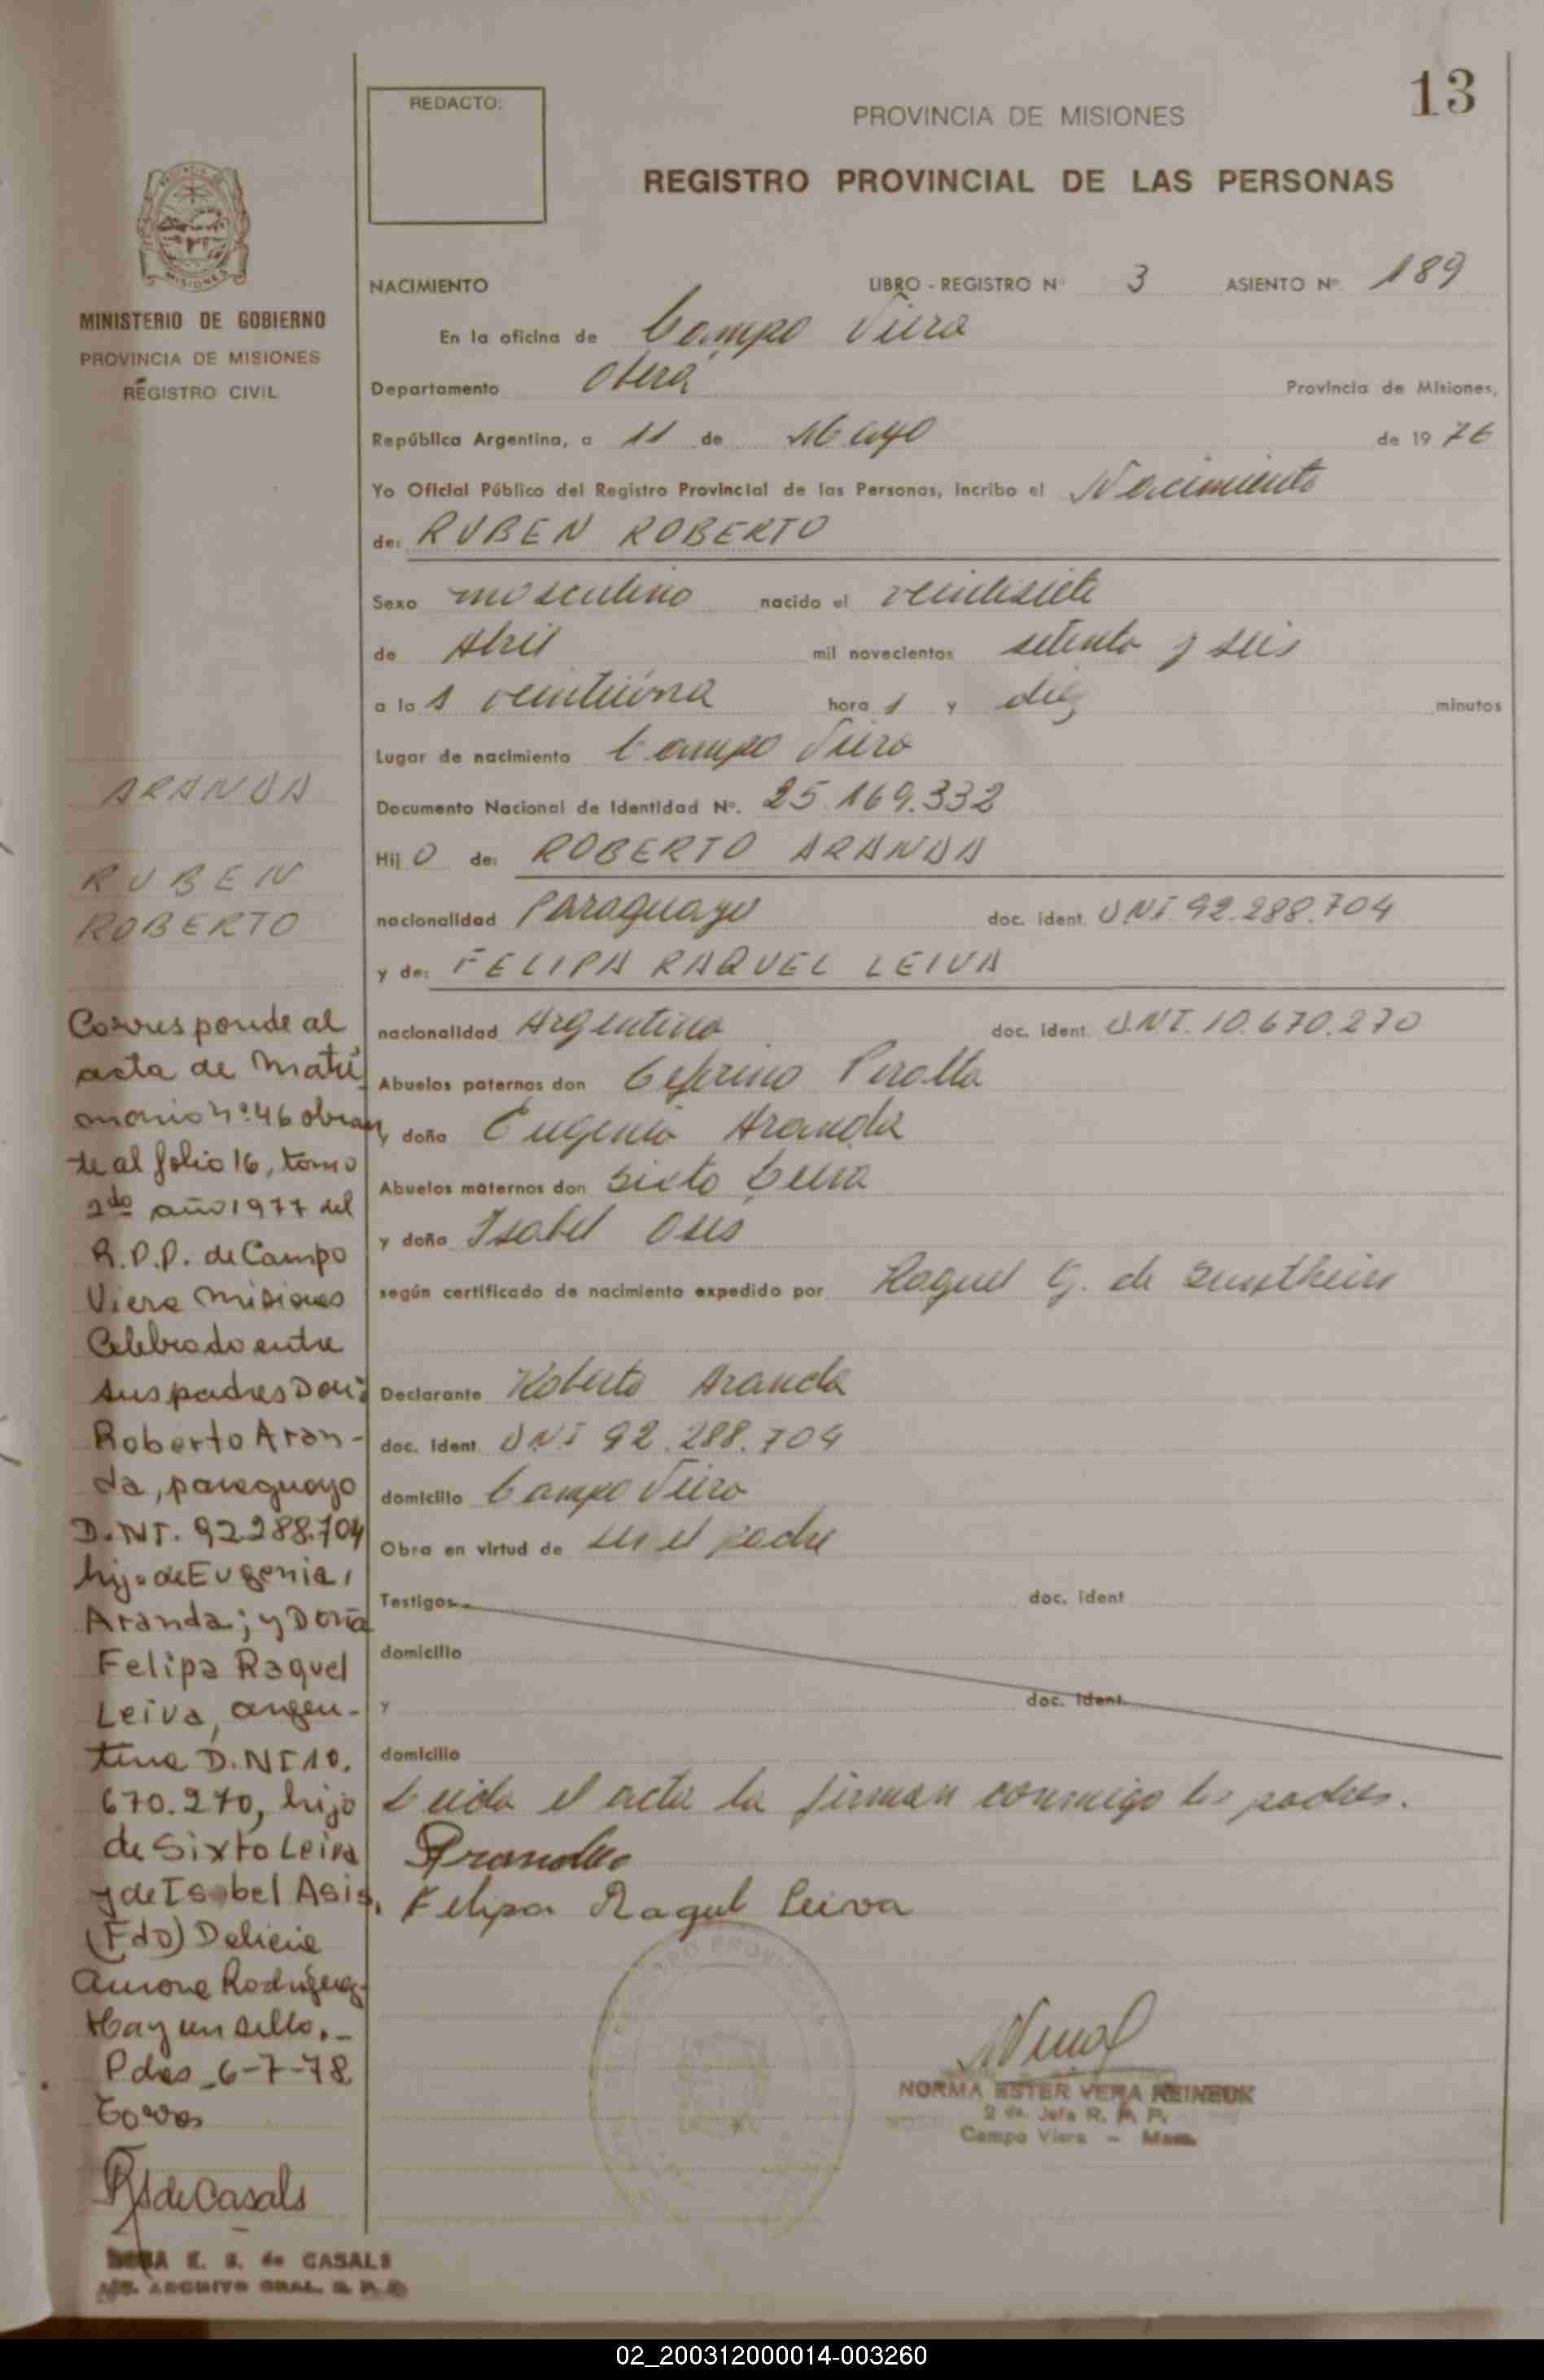 13
REDACTO:
PROVINCIA DE MISIONES
REGISTRO PROVINCIAL DE LAS PERSONAS
MISIONES
MINISTERIO DE GOBIERNO
PROVINCIA DE MISIONES
REGISTRO CIVIL
NACIMIENTO LIBRO - REGISTRO Nº 3 ASIENTO Nº 189
En la oficina de Campo Viera
Departamento Oberá Provincia de Misiones,
República Argentina, a 11 de Mayo de 19 76
Yo Oficial Público del Registro Provincial de las Personas, incribo el Nacimiento
de: RUBEN ROBERTO
Sexo masculino nacido el veintisiete
de Abril mil novecientos setenta y seis
a la s veintiúna hora s y diez minutos
Lugar de nacimiento Campo Viera
Documento Nacional de Identidad Nº. 25.169.332
Hij o de: ROBERTO ARANDA
nacionalidad Paraguayo doc. ident. DNI 92.288.704
y de: FELIPA RAQUEL LEIVA
nacionalidad Argentina doc. ident. D.N.I. 10.670.270
Abuelos paternos don Ceferino Peralta
y doña Eugenia Aranda
Abuelos maternos don Sixto Leiva
y doña Isabel
según certificado de nacimiento expedido por Raquel G. de
Declarante Roberto Aranda
doc. ident. DNI 92.288.704
domicilio Campo Viera
Obra en virtud de ser el padre
Testigos doc. ident
domicilio
y doc. ident.
domicilio
Leida el acta la firman conmigo los padres.
Aranda
Felipa Raquel Leiva
NORMA ESTER VERA REINECK
2 da. Jefa R. P. P.
Campo Viera - Mnes.
ARANDA
RUBEN
ROBERTO
Corresponde al
acta de Matri
monio nº 46 obran
te al folio 16, tomo
2do año 1977 del
R.P.P. de Campo
Viera Misiones
Celebrado entre
sus padres Don:
Roberto Aran-
da, paraguayo
D.NI. 92288.704
hijo de Eugenia,
Aranda; y Doña
Felipa Raquel
Leiva, argen-
tina D.NI 10.
670.270, hija
de Sixto Leiva
y de Isabel Asis,
(Fdo) Delicia
Rodríguez
Hay un sello.-
Pdas - 6-7-78
de Casals
E. S. de CASALS
02_200312000014-003260